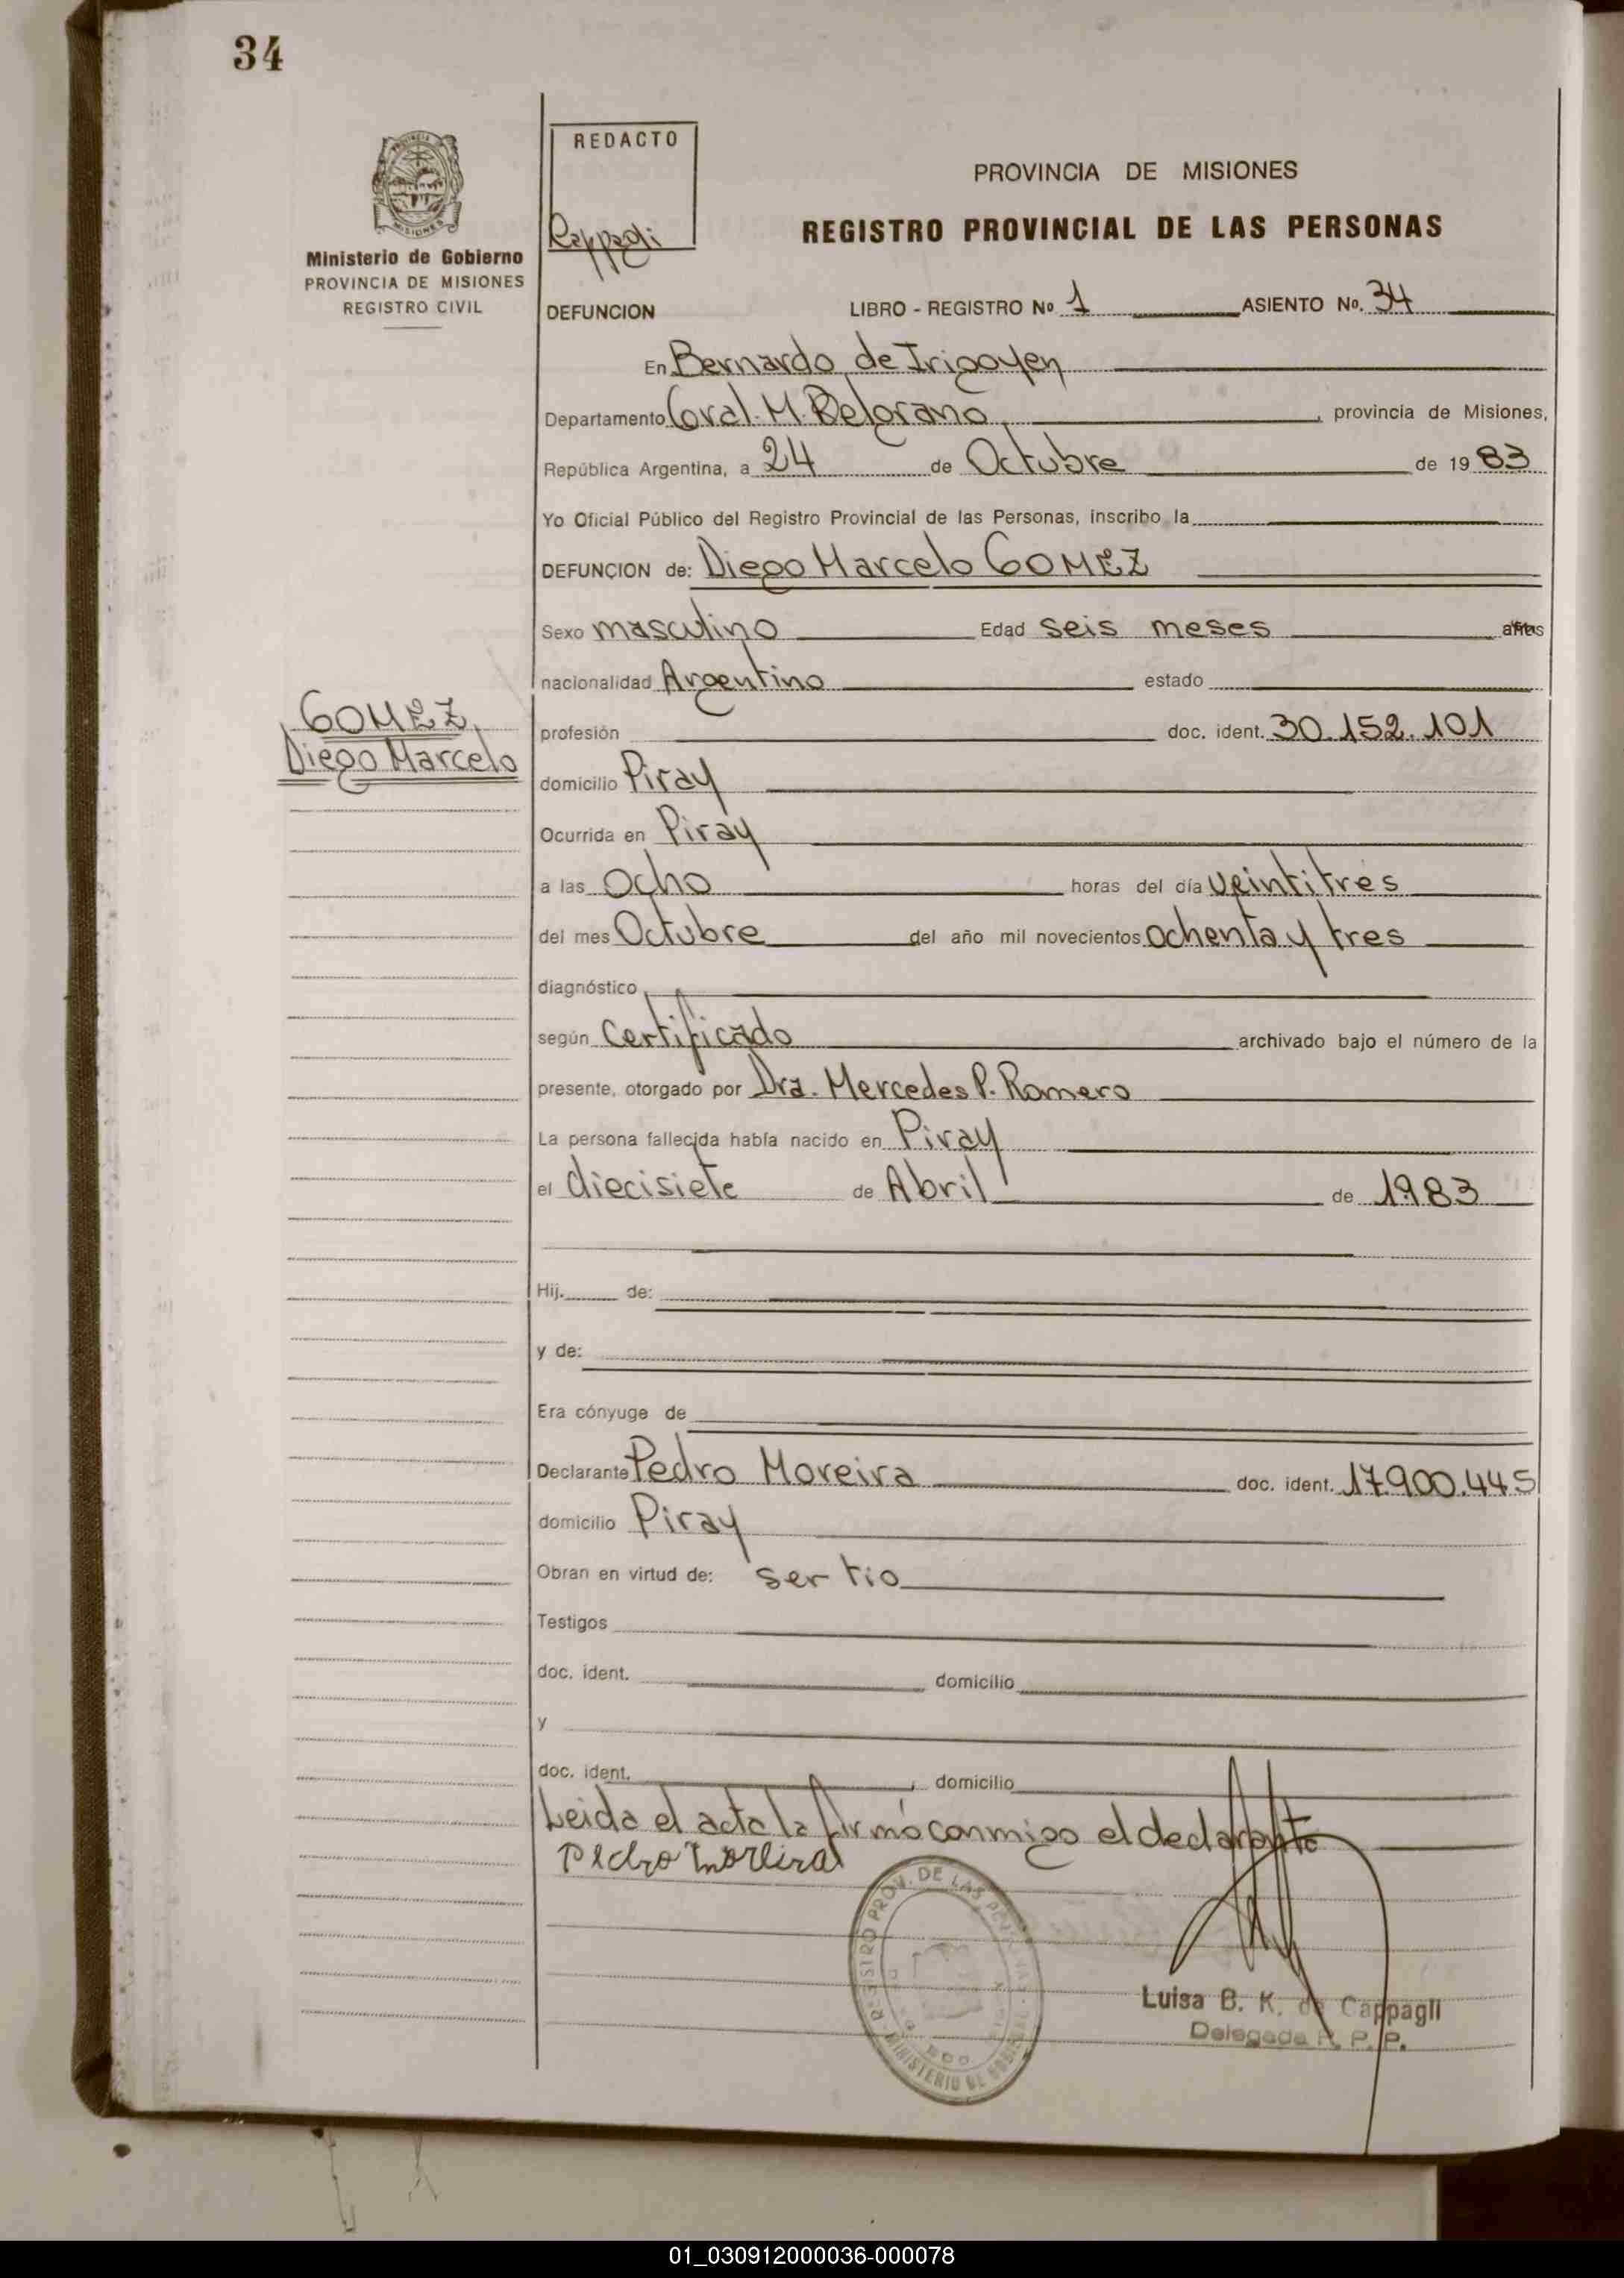 34
REDACTO
Cappagli
Ministerio de Gobierno
PROVINCIA DE MISIONES
REGISTRO CIVIL
PROVINCIA DE MISIONES
REGISTRO PROVINCIAL DE LAS PERSONAS
DEFUNCION LIBRO - REGISTRO Nº 1 ASIENTO Nº. 34
En Bernardo de Irigoyen
Departamento Gral. M. Belgrano, provincia de Misiones,
República Argentina, a 24 de Octubre de 1983
Yo Oficial Público del Registro Provincial de las Personas, inscribo la
DEFUNCION de: Diego Marcelo GOMEZ
Sexo masculino Edad seis meses años
nacionalidad Argentino estado
GOMEZ
Diego Marcelo
profesión doc. ident. 30.152.101
domicilio Piray
Ocurrida en Piray
a las Ocho horas del día veintitres
del mes Octubre del año mil novecientos ochenta y tres
diagnóstico
según Certificado archivado bajo el número de la
presente, otorgado por Dra. Mercedes P. Romero
La persona fallecida había nacido en Piray
el diecisiete de Abril de 1983
Hij. de:
y de:
Era cónyuge de
Declarante Pedro Moreira doc. ident. 17.900.445
domicilio Piray
Obran en virtud de: ser tio
Testigos
doc. ident. domicilio
y
doc. ident. , domicilio
Leida el acta la firmó conmigo el declarante
Pedro Moreira
REGISTRO PROV. DE LAS
MINISTERIO DE
Luisa B. K. de Cappagli
Delegada R. P. P.
01_030912000036-000078